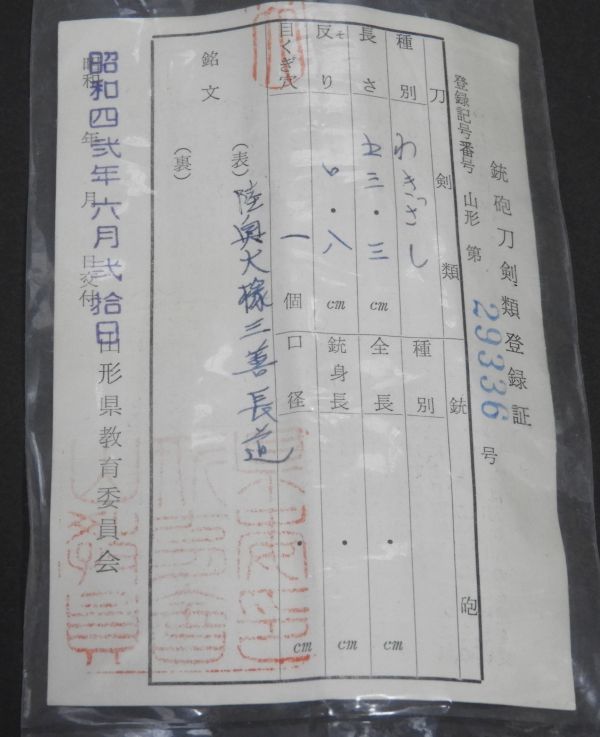 銃砲刀剣類登録証
登録記号番号 山形 第 29336 号
刀剣類
銃砲
種別 わきざし
種別
長さ 五三・三 cm
全長 ・ cm
反り そ 〇・八 cm
銃身長 ・ cm
目くぎ穴 一 個
口径 ・ cm
銘文
(表) 陸奥大掾三善長道
(裏)
昭和 年 月 日交付
昭和四弐年六月弐拾日
山形県教育委員会